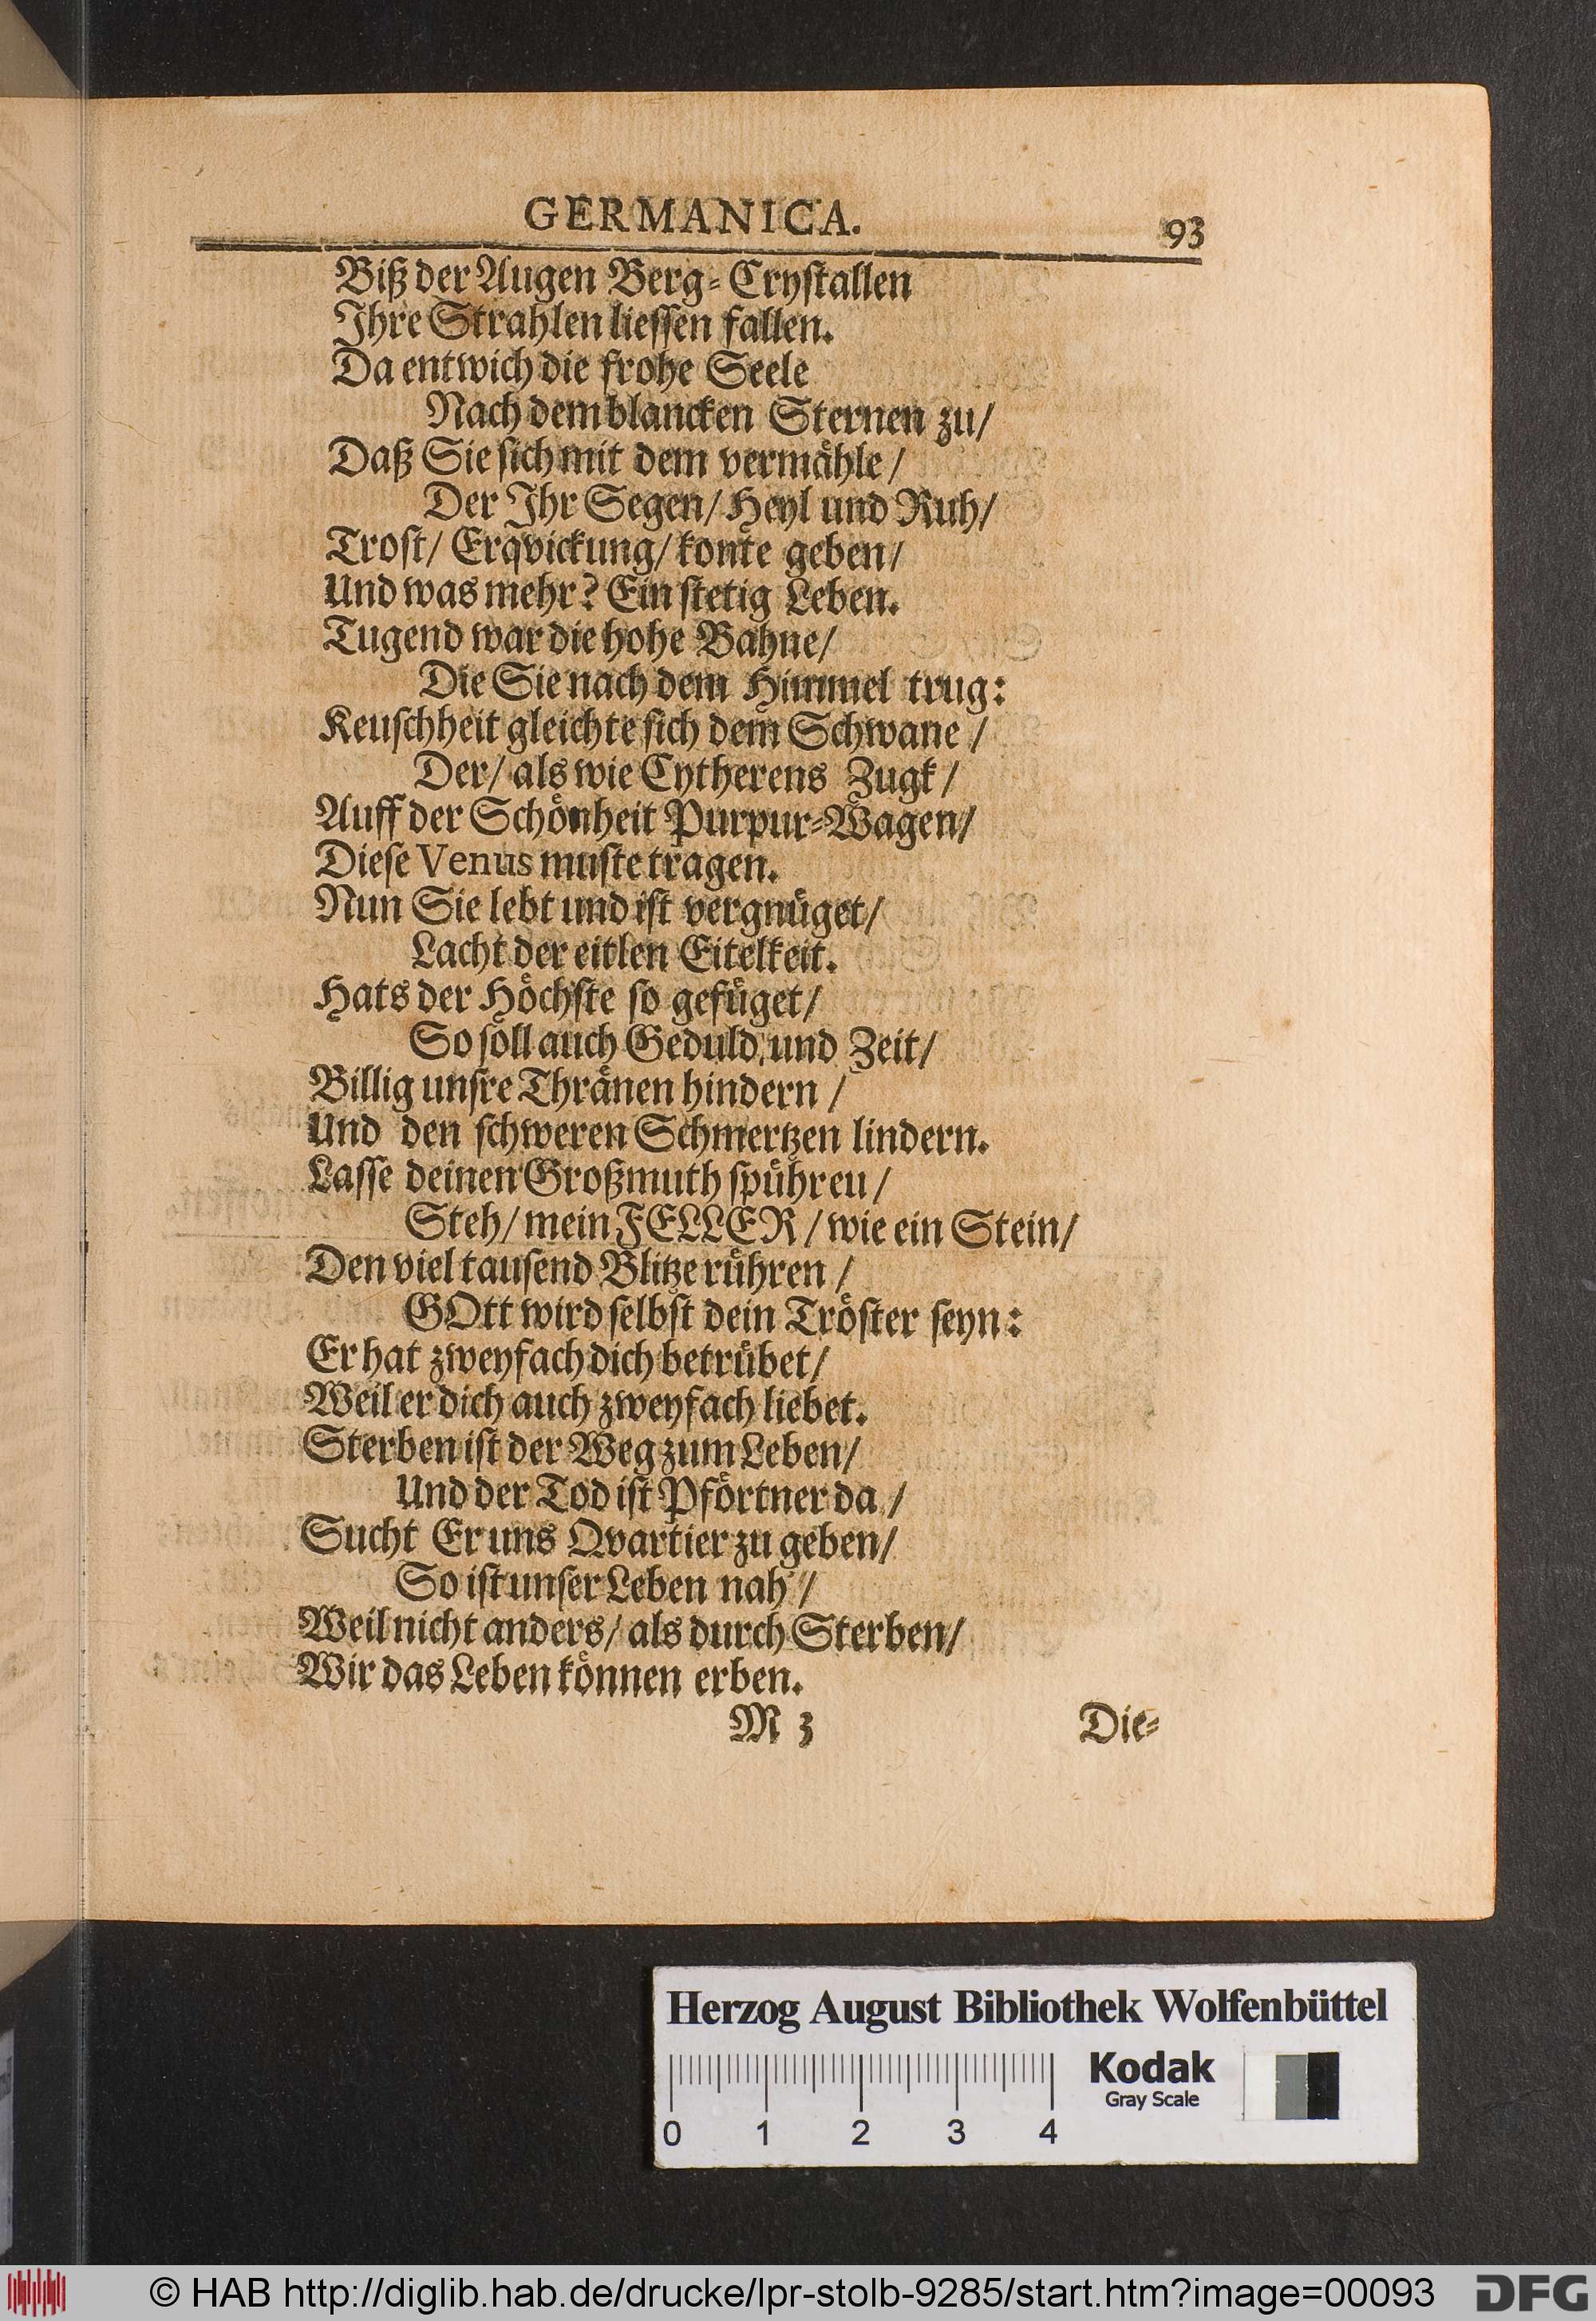 GERMANICA. 93
Biß der Augen Berg-Cryſtallen
Ihre Strahlen lieſſen fallen.
Da entwich die frohe Seele
Nach dem blancken Sternen zu/
Daß Sie ſich mit dem vermaͤhle/
Der Ihr Segen/ Heyl und Ruh/
Troſt/ Erqvickung/ konte geben/
Und was mehr? Ein ſtetig Leben.
Tugend war die hohe Bahne/
Die Sie nach dem Himmel trug:
Keuſchheit gleichte ſich dem Schwane/
Der/ als wie Cytherens Zugk/
Auff der Schoͤnheit Purpur-Wagen/
Dieſe Venus muſte tragen.
Nun Sie lebt und iſt vergnuͤget/
Lacht der eitlen Eitelkeit.
Hats der Hoͤchſte ſo gefuͤget/
So ſoll auch Geduld und Zeit/
Billig unſre Thraͤnen hindern/
Und den ſchweren Schmertzen lindern.
Laſſe deinen Großmuth ſpuͤhreu/
Steh/ mein FELLER/ wie ein Stein/
Den viel tauſend Blitze ruͤhren/
GOtt wird ſelbſt dein Troͤſter ſeyn:
Er hat zweyfach dich betruͤbet/
Weil er dich auch zweyfach liebet.
Sterben iſt der Weg zum Leben/
Und der Tod iſt Pfoͤrtner da/
Sucht Er uns Qvartier zu geben/
So iſt unſer Leben nah/
Weil nicht anders/ als durch Sterben/
Wir das Leben koͤnnen erben.
M 3 Die-
Herzog August Bibliothek Wolfenbüttel
Kodak
Gray Scale
0 1 2 3 4
© HAB http://diglib.hab.de/drucke/lpr-stolb-9285/start.htm?image=00093 DFG